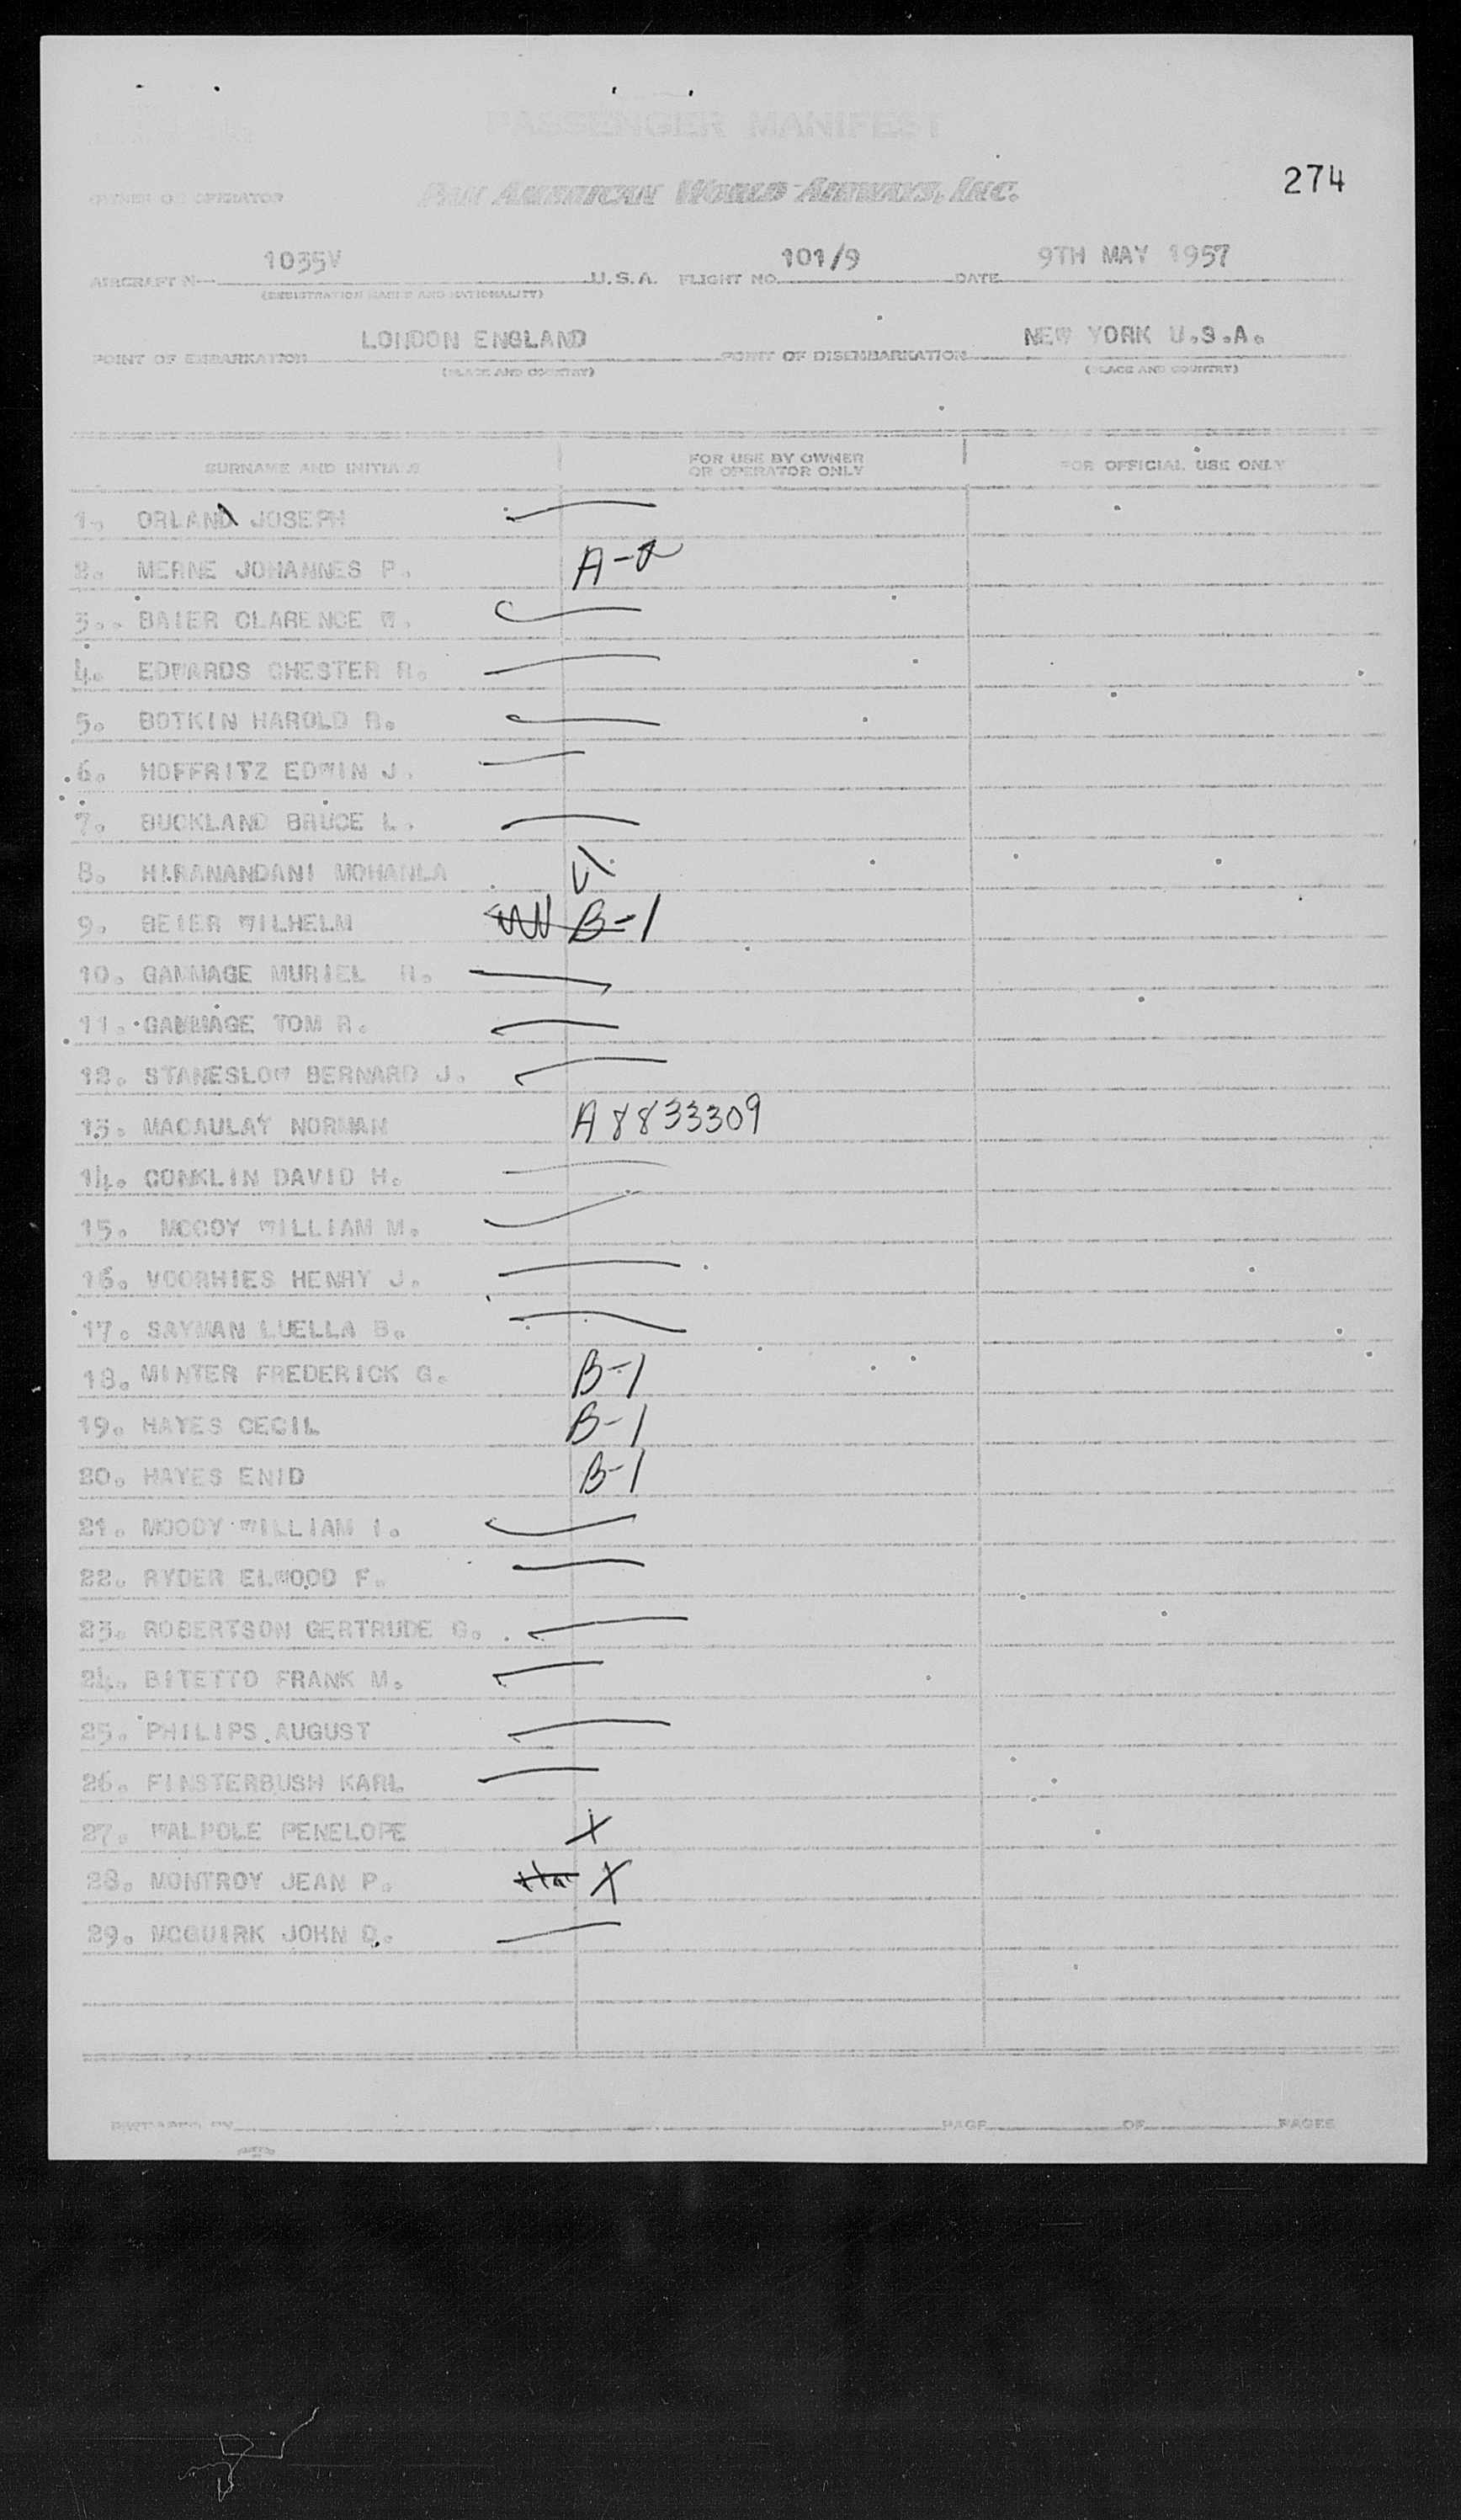 PASSENGER MANIFEST
274
OWNER OR OPERATOR PAN AMERICAN WORLD AIRWAYS, INC.
AIRCRAFT N 1035V U.S.A. FLIGHT NO. 101/9 DATE 9TH MAY 1957
(REGISTRATION MARKS AND NATIONALITY)
POINT OF EMBARKATION LONDON ENGLAND POINT OF DISEMBARKATION NEW YORK U.S.A.
(PLACE AND COUNTRY) (PLACE AND COUNTRY)
SURNAME AND INITIALS FOR USE BY OWNER OR OPERATOR ONLY FOR OFFICIAL USE ONLY
1. ORLAND JOSEPH
2. MERNE JOHANNES P. A-2
3. BAIER CLARENCE W.
4. EDWARDS CHESTER R.
5. BOTKIN HAROLD R.
6. HOFFRITZ EDWIN J.
7. BUCKLAND BRUCE L.
8. HIRANANDANI MOHANLA
9. BEIER WILHELM B-1
10. GAMMAGE MURIEL H.
11. GAMMAGE TOM R.
12. STANESLOW BERNARD J.
13. MACAULAY NORMAN A8833309
14. CONKLIN DAVID H.
15. MCCOY WILLIAM M.
16. VOORHIES HENRY J.
17. SAYMAN LUELLA B.
18. MINTER FREDERICK G. B-1
19. HAYES CECIL B-1
20. HAYES ENID B-1
21. MOODY WILLIAM I.
22. RYDER ELWOOD F.
23. ROBERTSON GERTRUDE G.
24. BITETTO FRANK M.
25. PHILIPS AUGUST
26. FINSTERBUSH KARL
27. WALPOLE PENELOPE X
28. MONTROY JEAN P. X
29. MCGUIRK JOHN D.
PREPARED BY PAGE OF PAGES